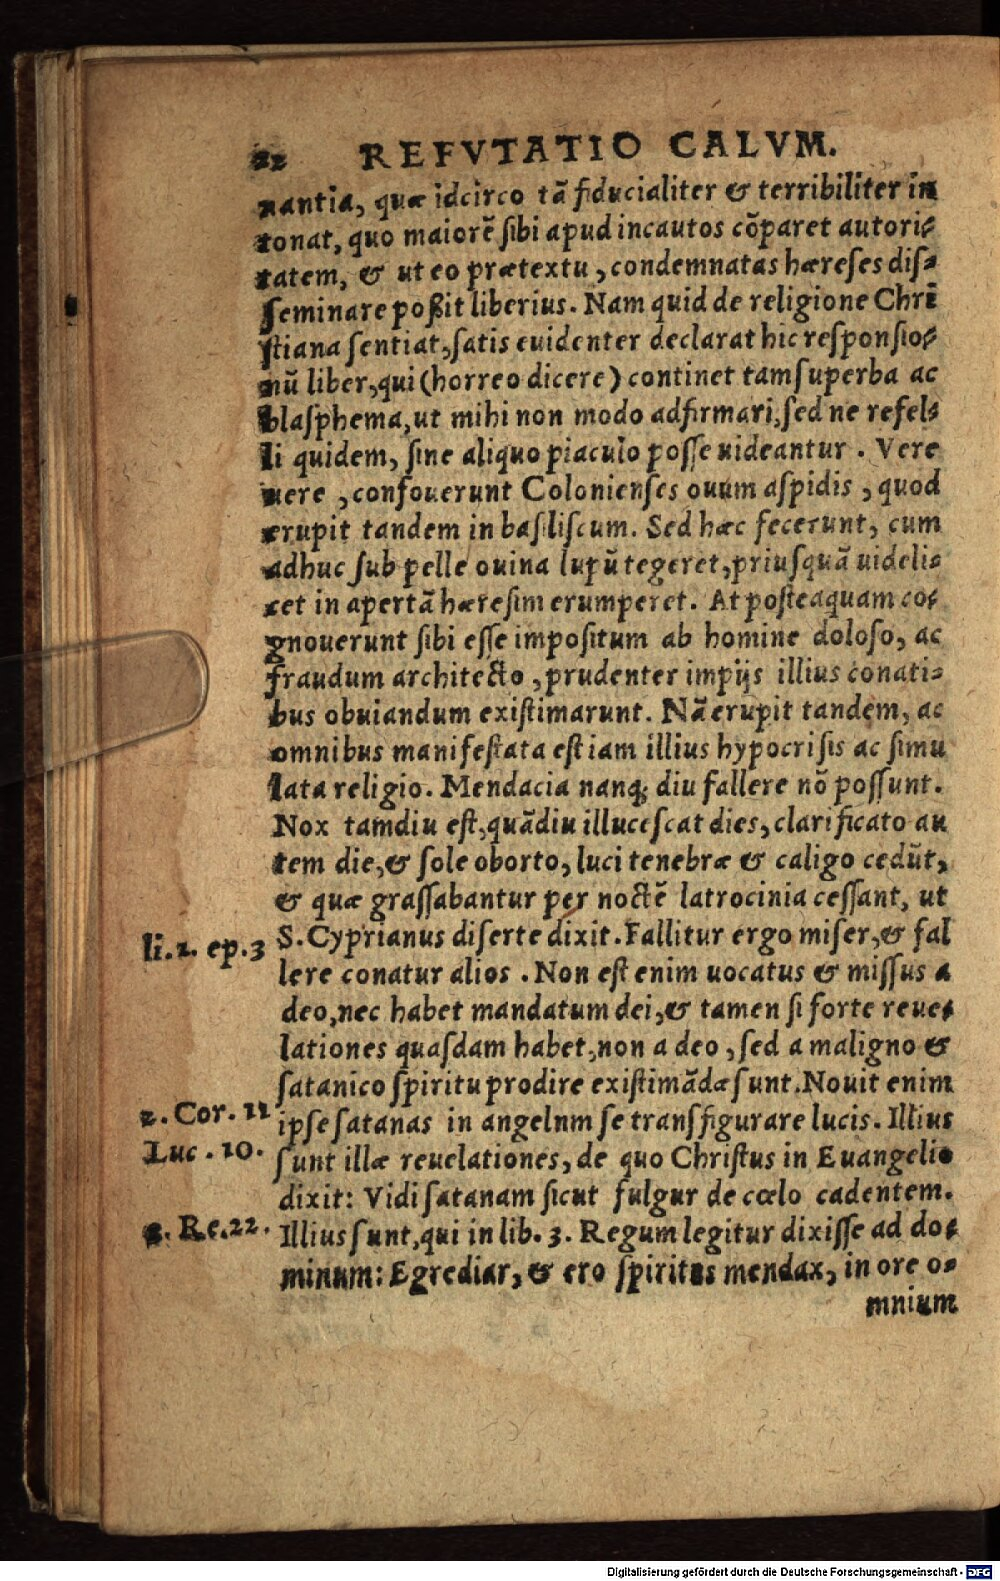 22 REFVTATIO CALVM.
nantia, quæ idcirco tā fiducialiter & terribiliter in
tonat, quo maiorē sibi apud incautos cōparet autori-
tatem, & ut eo prætextu, condemnatas hæreses dis-
seminare poßit liberius. Nam quid de religione Chri
stiana sentiat, satis euidenter declarat hic responsio-
nū liber, qui (horreo dicere) continet tam superba ac
blasphema, ut mihi non modo adfirmari, sed ne refel-
li quidem, sine aliquo piaculo posse uideantur. Vere
uere, confouerunt Colonienses ouum aspidis, quod
erupit tandem in basiliscum. Sed hæc fecerunt, cum
adhuc sub pelle ouina lupū tegeret, priusquā uideli-
cet in apertā hæresim erumperet. At posteaquam co-
gnouerunt sibi esse impositum ab homine doloso, ac
fraudum architecto, prudenter impijs illius conati-
bus obuiandum existimarunt. Nā erupit tandem, ac
omnibus manifestata est iam illius hypocrisis ac simu
lata religio. Mendacia nanq; diu fallere nō possunt.
Nox tamdiu est, quādiu illucescat dies, clarificato au
tem die, & sole oborto, luci tenebræ & caligo cedūt,
& quæ grassabantur per noctē latrocinia cessant, ut
li.2. ep.3 S. Cyprianus diserte dixit. Fallitur ergo miser, & fal
lere conatur alios. Non est enim uocatus & missus a
deo, nec habet mandatum dei, & tamen si forte reue-
lationes quasdam habet, non a deo, sed a maligno &
satanico spiritu prodire existimādæ sunt. Nouit enim
2. Cor. 11 ipse satanas in angelnm se transfigurare lucis. Illius
Luc. 10. sunt illæ reuelationes, de quo Christus in Euangelio
dixit: Vidi satanam sicut fulgur de cœlo cadentem.
Re.22. Illius sunt, qui in lib. 3. Regum legitur dixisse ad do-
minum: Egrediar, & ero spiritus mendax, in ore o-
mnium
Digitalisierung gefördert durch die Deutsche Forschungsgemeinschaft - DFG